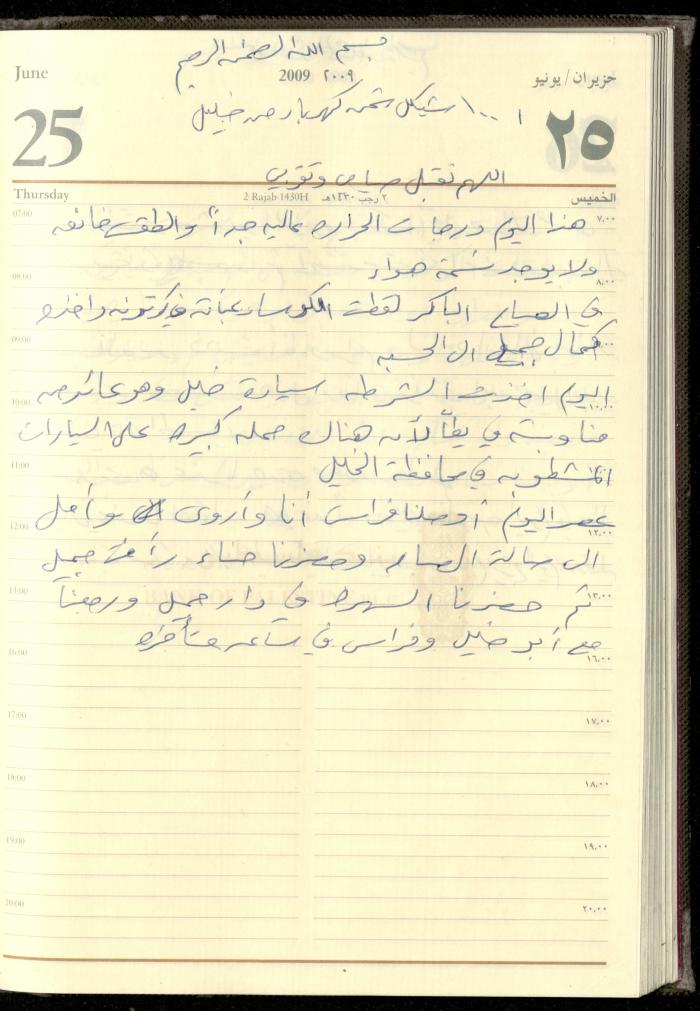 بسم الله الرحمن الرحيم
June
2009 ٢٠٠٩
حزيران / يونيو
25
١٠٠ شيكل ثمن كهرباء من خليل
٢٥
اللهم تقبل صيامي وتقربي
Thursday
2 Rajab 1430H ٢ رجب ١٤٣٠هـ
الخميس
07:00 ٧,٠٠
هذا اليوم درجات الحراره عاليه جداً والطقس خانقه
ولا يوجد نسمة هواء
08:00 ٨,٠٠
في الصباح الباكر لقطت الكوسا وعبأته في كرتونه واخذه
09:00
كمال جميل الى الحسبه
اليوم اخذت الشرطه سيارة خليل وهو عائد من
10:00 ١٠,٠٠
مناوبته في يطّا لأنه هناك حمله كبيره على السيارات
11:00
المشطوبه في محافظة الخليل
عصر اليوم أوصلنا فراس أنا وأروى وأمل
12:00 ١٢,٠٠
الى صالة وحضرنا حناء رأفت جميل
13:00 ١٣,٠٠
ثم حضرنا السهره في دار جميل ورجعنا
مع أبو خليل وفراس في ساعه متأخره
16:00 ١٦,٠٠
17:00 ١٧,٠٠
18:00 ١٨,٠٠
19:00 ١٩,٠٠
20:00 ٢٠,٠٠